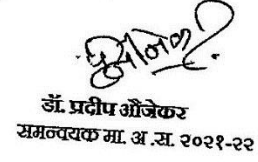 डॉ. प्रदीप औजेकर
समन्वयक मा. अ .स. २०२१-२२